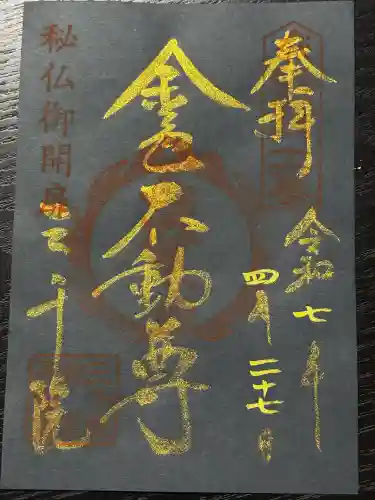 奉拝
令和七年
四月二十七日
金色不動尊
秘仏御開扉
三井院